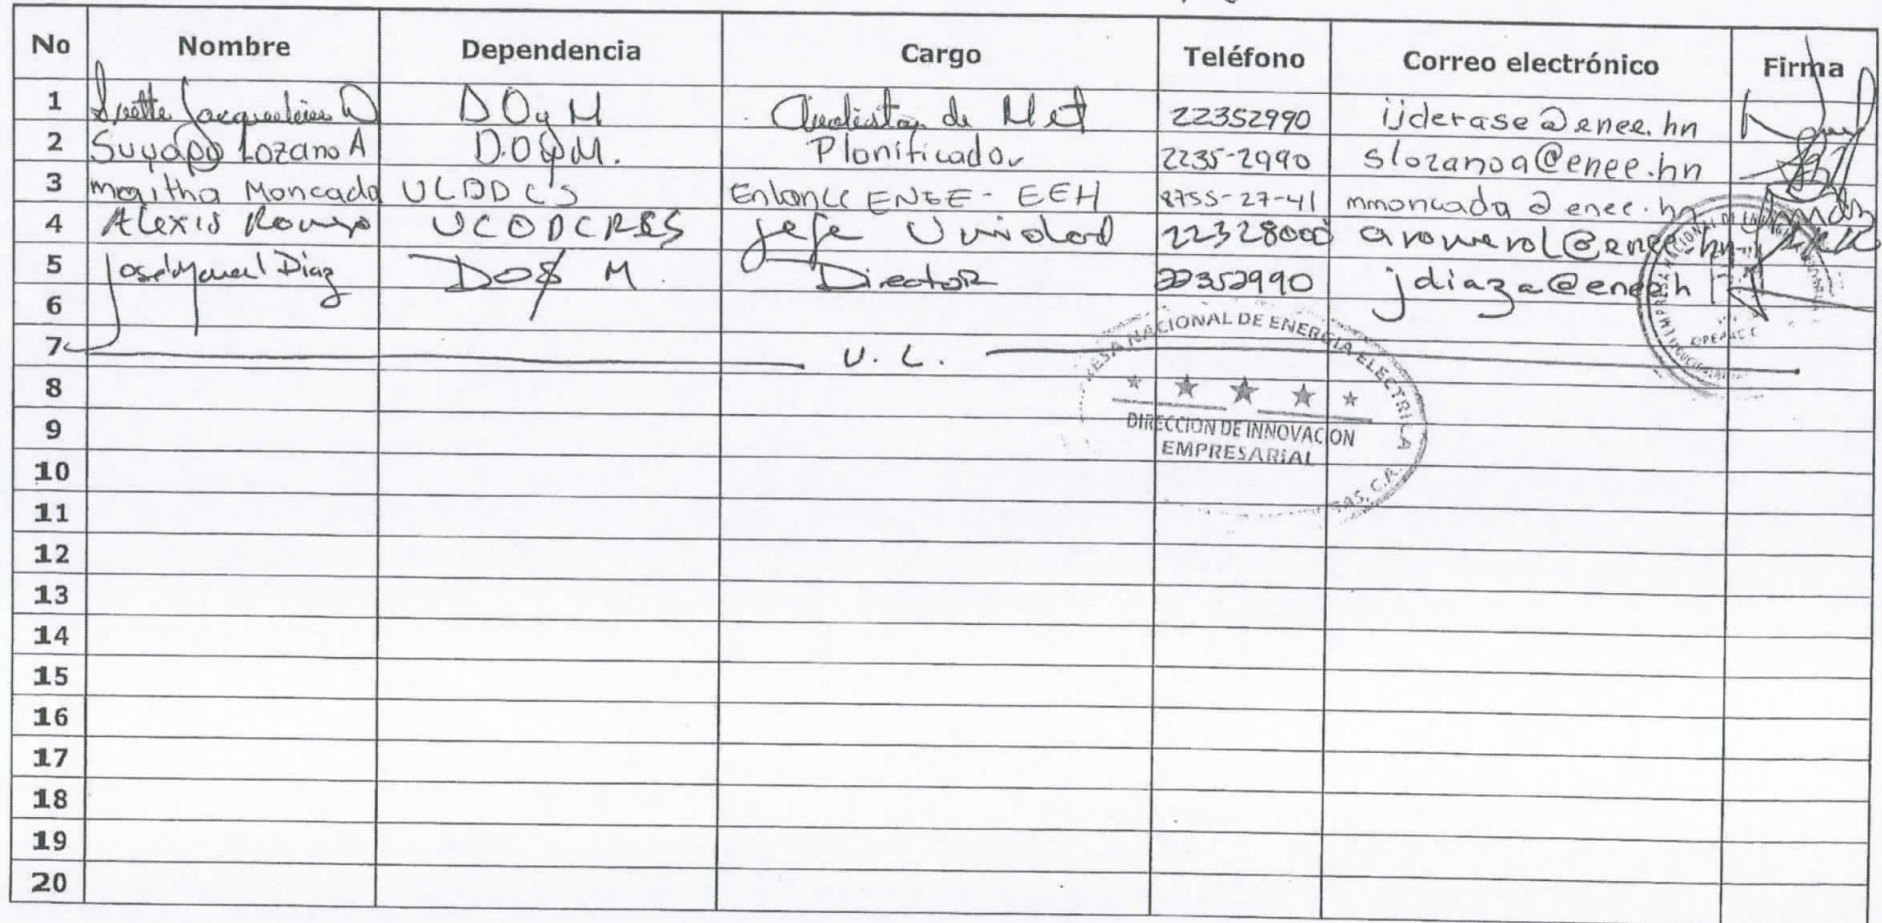 No Nombre Dependencia Cargo Teléfono Correo electrónico Firma
1 Ivette Jacqueline D DOyM Analista de Met 22352990 ijderase@enee.hn
2 Suyapa Lozano A D.OyM. Planificador 2235-2990 slozanoa@enee.hn
3 Moncada Enlance ENEE-EEH 8755-27-41 mmoncada@enee.hn
4 Alexis Romero UCODCRES Jefe Unidad 22328000 aromerol@enee.hn
5 José Manuel Diaz DO& M. Director 22352990 jdiaza@enee.h
6
7 U. L.
NACIONAL DE ENERGIA ELECTRICA
8
9
DIRECCION DE INNOVACION
EMPRESARIAL
10
11
12
13
14
15
16
17
18
19
20